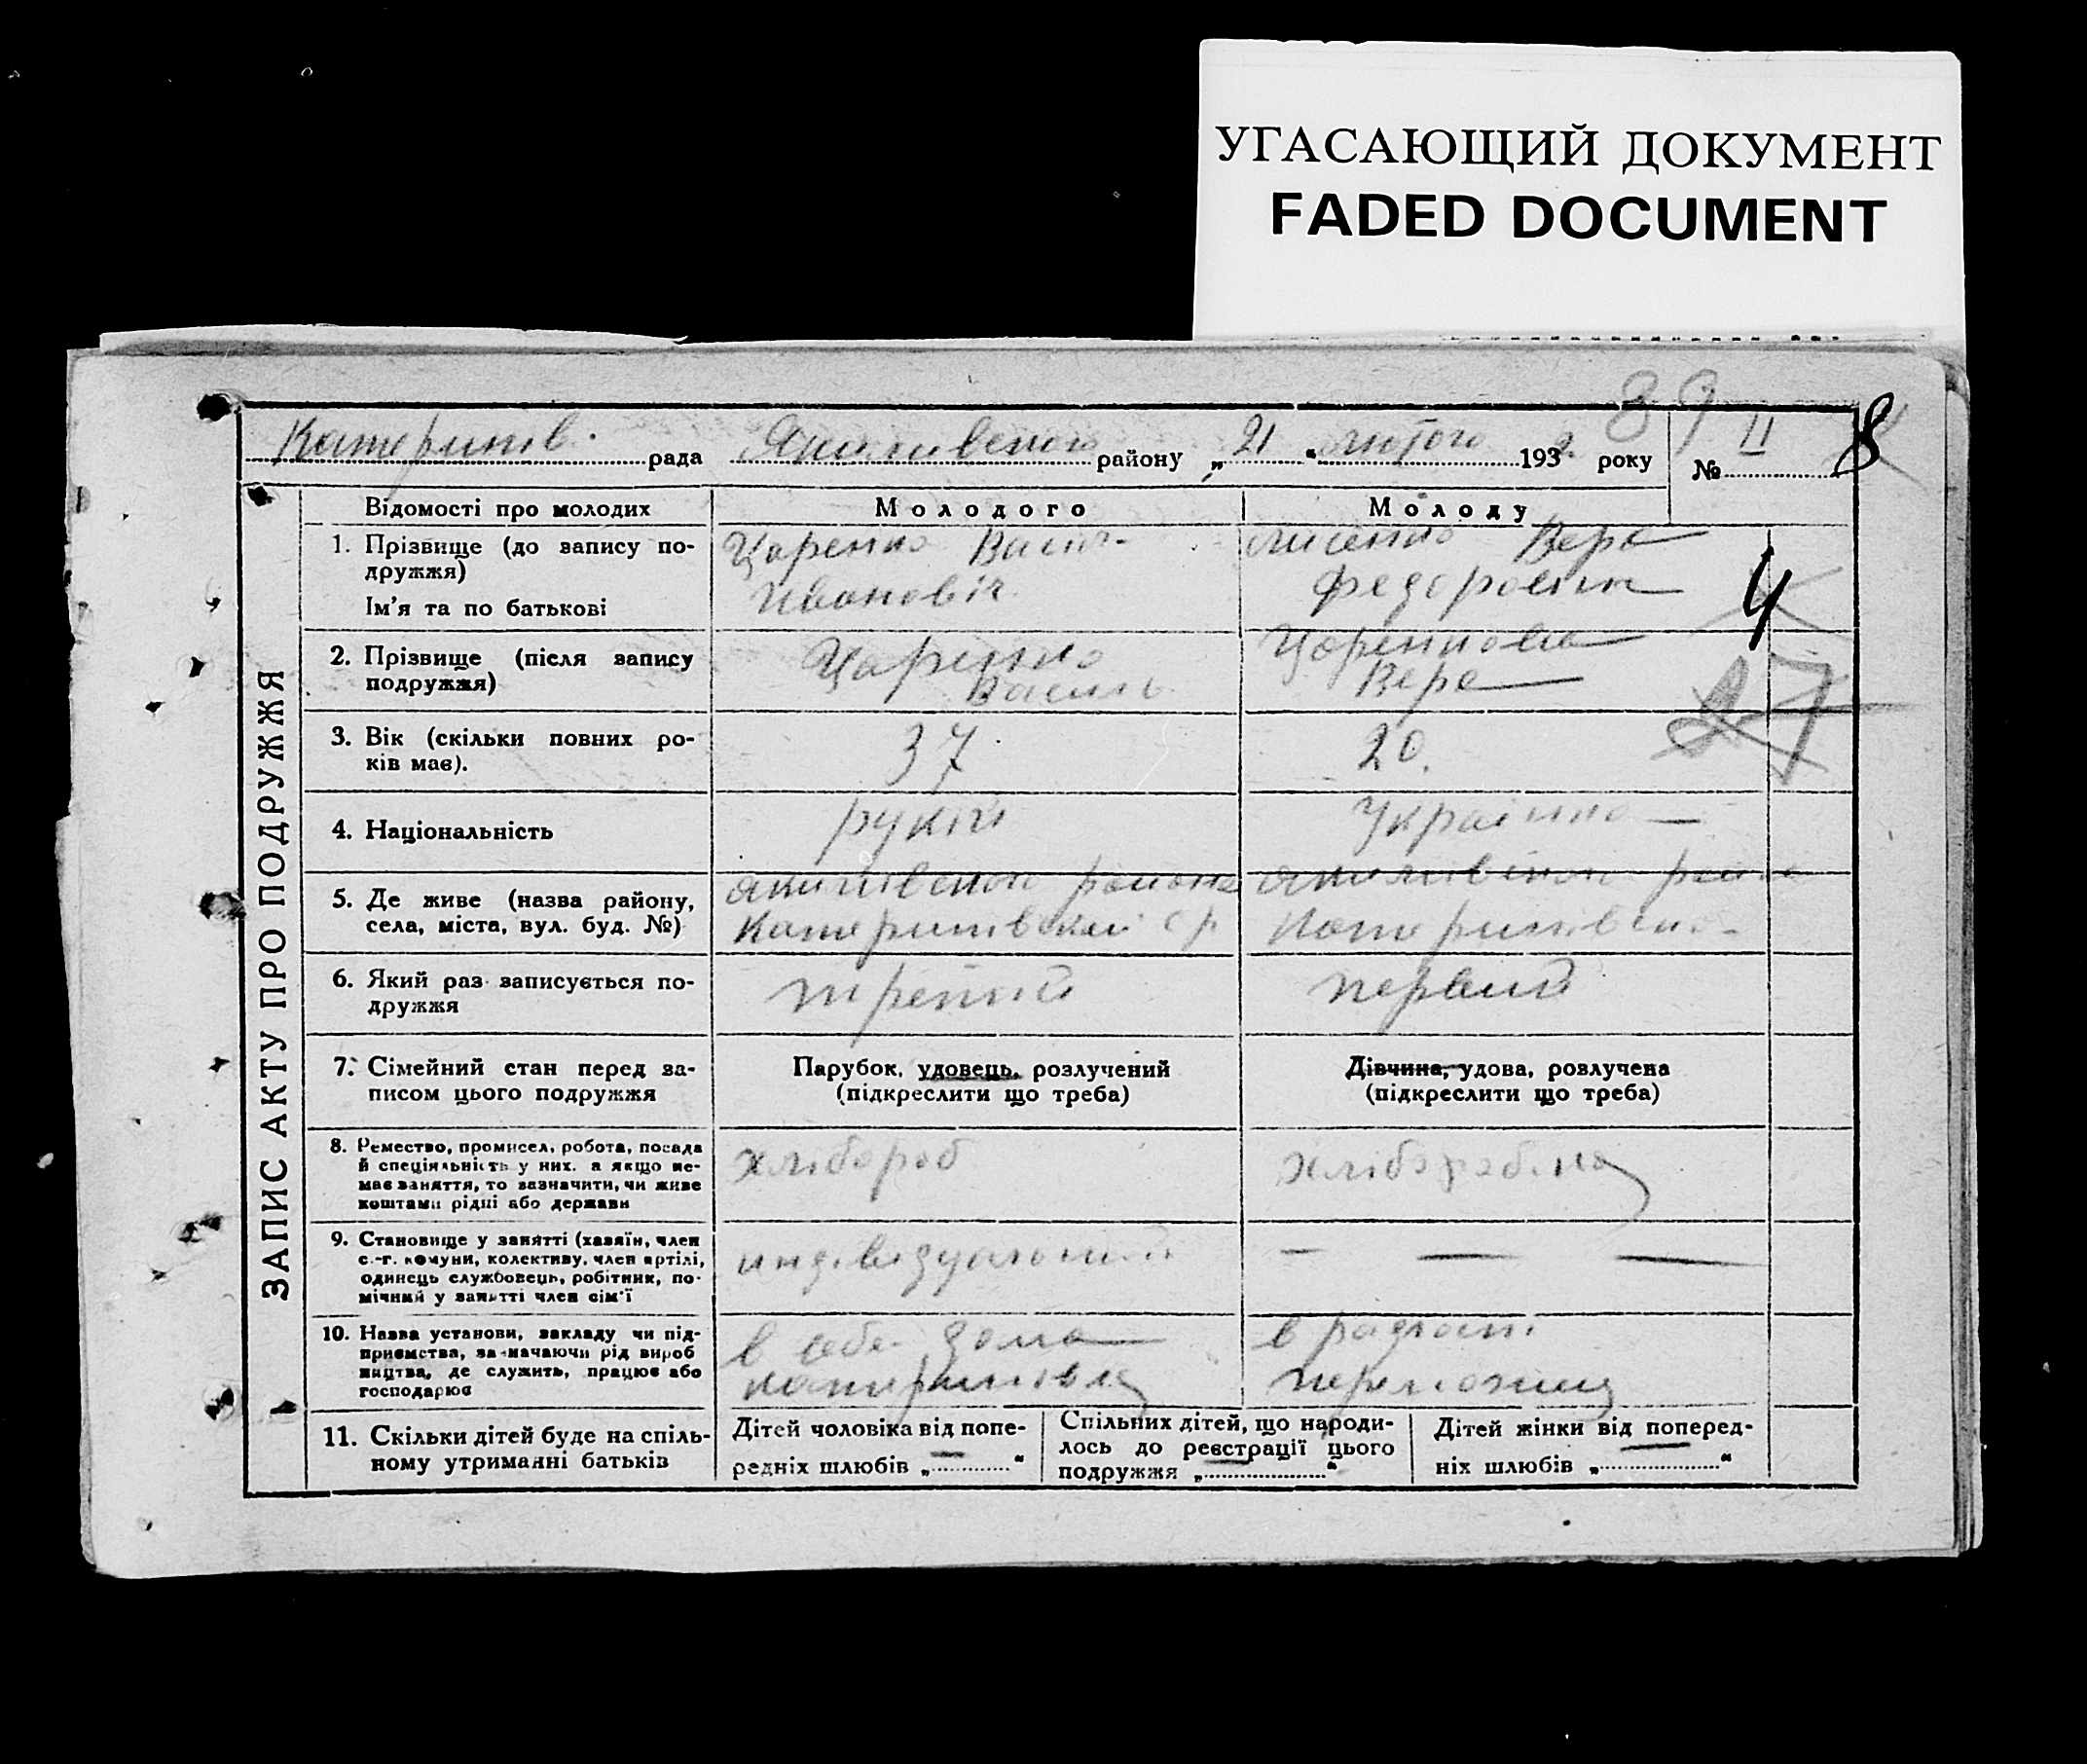 УГАСАЮЩИЙ ДОКУМЕНТ
FADED DOCUMENT
89
Катеринів. рада Якимивського району „21“ лютого 1932 року № 11
8
ЗАПИС АКТУ ПРО ПОДРУЖЖЯ
Відомості про молодих
Молодого
Молоду
1. Прізвище (до запису по-
дружжя)
Ім'я та по батькові
Царенко Васил-
Ивановіч
Лисенко Вера
Федоровна
4
2. Прізвище (після запису
подружжя)
Царенко
Василь
Царенкова
Вера
27
3. Вік (скільки повних ро-
ків має).
37
20.
4. Національність
рукий
Українка
5. Де живе (назва району,
села, міста, вул. буд. №)
Якимівского района
Катеринівской с р
Якимівского райно
Катеринівско-
6. Який раз записується по-
дружжя
третий
первий
7. Сімейний стан перед за-
писом цього подружжя
Парубок, удовець, розлучений
(підкреслити що треба)
Дівчина, удова, розлучена
(підкреслити що треба)
8. Ремество, промисел, робота, посада
й спеціяльність у них. а якщо не-
має заняття, то зазначити, чи живе
коштами рідні або держави
хлібороб
хліборобка
9. Становище у занятті (хазяїн, член
с.-г. комуни, колективу, член артілі,
одинець службовець, робітник, по-
мічний у занятті член сім'ї
индівидуальний
— — —
10. Назва установи, закладу чи під-
приємства, зазначаючи рід вироб
ництва, де служить, працює або
господарює
в себе дома
катеринівка
в
11. Скільки дітей буде на спіль-
ному утриманні батьків
Дітей чоловіка від попе-
редніх шлюбів „—“
Спільних дітей, що народи-
лось до реєстрації цього
подружжя „—“
Дітей жінки від поперед-
ніх шлюбів „—“